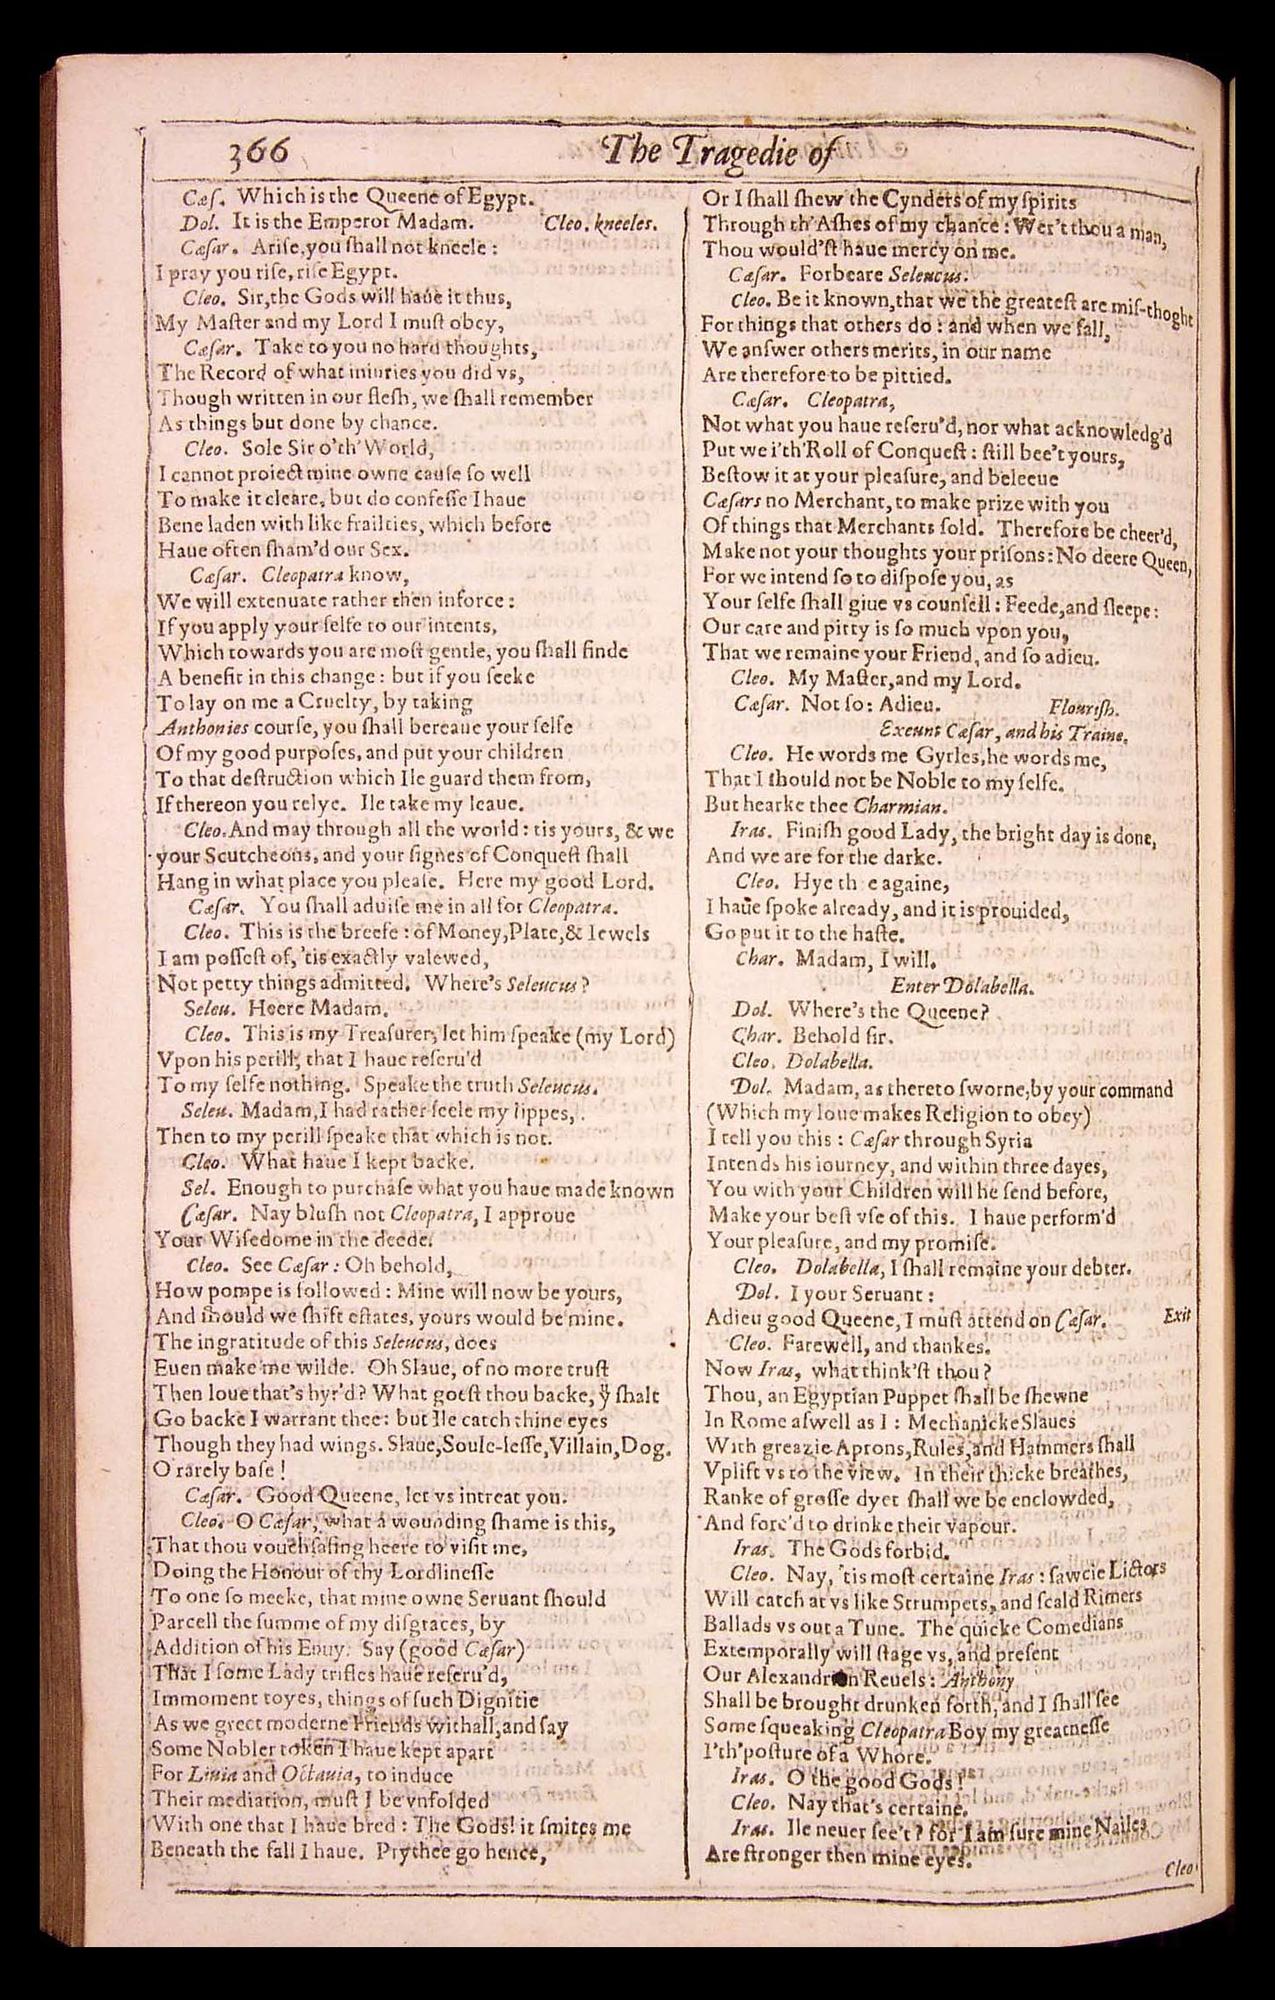 366 The Tragedie of
Cæſ. Which is the Queene of Egypt.
Dol. It is the Emperor Madam. Cleo. kneeles.
Cæſar. Ariſe, you ſhall not kneele :
I pray you riſe, riſe Egypt.
Cleo. Sir, the Gods will haue it thus,
My Maſter and my Lord I muſt obey,
Cæſar. Take to you no hard thoughts,
The Record of what iniuries you did vs,
Though written in our fleſh, we ſhall remember
As things but done by chance.
Cleo. Sole Sir o'th'World,
I cannot proiect mine owne cauſe ſo well
To make it cleare, but do confeſſe I haue
Bene laden with like frailties, which before
Haue often ſham'd our Sex.
Cæſar. Cleopatra know,
We will extenuate rather then inforce :
If you apply your ſelfe to our intents,
Which towards you are moſt gentle, you ſhall finde
A benefit in this change : but if you ſeeke
To lay on me a Cruelty, by taking
Anthonies courſe, you ſhall bereaue your ſelfe
Of my good purpoſes, and put your children
To that deſtruction which Ile guard them from,
If thereon you relye. Ile take my leaue.
Cleo. And may through all the world : tis yours, & we
your Scutcheons, and your ſignes of Conqueſt ſhall
Hang in what place you pleaſe. Here my good Lord.
Cæſar. You ſhall aduiſe me in all for Cleopatra.
Cleo. This is the breefe : of Money, Plate, & Iewels
I am poſſeſt of, 'tis exactly valewed,
Not petty things admitted. Where's Seleucus?
Seleu. Heere Madam.
Cleo. This is my Treaſurer, let him ſpeake (my Lord)
Vpon his perill, that I haue reſeru'd
To my ſelfe nothing. Speake the truth Seleucus.
Seleu. Madam, I had rather ſeele my lippes,
Then to my perill ſpeake that which is not.
Cleo. What haue I kept backe.
Sel. Enough to purchaſe what you haue made known
Cæſar. Nay bluſh not Cleopatra, I approue
Your Wiſedome in the deede.
Cleo. See Cæſar : Oh behold,
How pompe is followed : Mine will now be yours,
And ſhould we ſhift eſtates, yours would be mine.
The ingratitude of this Seleucus, does
Euen make me wilde. Oh Slaue, of no more truſt
Then loue that's hyr'd? What goeſt thou backe, yͧ ſhalt
Go backe I warrant thee: but Ile catch thine eyes
Though they had wings. Slaue, Soule-leſſe, Villain, Dog.
O rarely baſe !
Cæſar. Good Queene, let vs intreat you.
Cleo. O Cæſar, what a wounding ſhame is this,
That thou vouchſafing heere to viſit me,
Doing the Honour of thy Lordlineſſe
To one ſo meeke, that mine owne Seruant ſhould
Parcell the ſumme of my diſgraces, by
Addition of his Enuy. Say (good Cæſar)
That I ſome Lady trifles haue reſeru'd,
Immoment toyes, things of ſuch Dignitie
As we greet moderne Friends withall, and ſay
Some Nobler token I haue kept apart
For Liuia and Octauia, to induce
Their mediation, muſt I be vnfolded
With one that I haue bred : The Gods! it ſmites me
Beneath the fall I haue. Prythee go hence,
Or I ſhall ſhew the Cynders of my ſpirits
Through th'Aſhes of my chance : Wer't thou a man,
Thou would'ſt haue mercy on me.
Cæſar. Forbeare Seleucus.
Cleo. Be it known, that we the greateſt are miſ-thoght
For things that others do : and when we fall,
We anſwer others merits, in our name
Are therefore to be pittied.
Cæſar. Cleopatra,
Not what you haue reſeru'd, nor what acknowledg'd
Put we i'th'Roll of Conqueſt : ſtill bee't yours,
Beſtow it at your pleaſure, and beleeue
Cæſars no Merchant, to make prize with you
Of things that Merchants ſold. Therefore be cheer'd,
Make not your thoughts your priſons: No deere Queen,
For we intend ſo to diſpoſe you, as
Your ſelfe ſhall giue vs counſell : Feede, and ſleepe :
Our care and pitty is ſo much vpon you,
That we remaine your Friend, and ſo adieu.
Cleo. My Maſter, and my Lord.
Cæſar. Not ſo : Adieu. Flouriſh.
Exeunt Cæſar, and his Traine.
Cleo. He words me Gyrles, he words me,
That I ſhould not be Noble to my ſelfe.
But hearke thee Charmian.
Iras. Finiſh good Lady, the bright day is done,
And we are for the darke.
Cleo. Hye th e againe,
I haue ſpoke already, and it is prouided,
Go put it to the haſte.
Char. Madam, I will.
Enter Dolabella.
Dol. Where's the Queene?
Char. Behold ſir.
Cleo. Dolabella.
Dol. Madam, as thereto ſworne, by your command
(Which my loue makes Religion to obey)
I tell you this : Cæſar through Syria
Intends his iourney, and within three dayes,
You with your Children will he ſend before,
Make your beſt vſe of this. I haue perform'd
Your pleaſure, and my promiſe.
Cleo. Dolabella, I ſhall remaine your debter.
Dol. I your Seruant :
Adieu good Queene, I muſt attend on Cæſar. Exit
Cleo. Farewell, and thankes.
Now Iras, what think'ſt thou?
Thou, an Egyptian Puppet ſhall be ſhewne
In Rome aſwell as I : Mechanicke Slaues
With greazie Aprons, Rules, and Hammers ſhall
Vplift vs to the view. In their thicke breathes,
Ranke of groſſe dyet ſhall we be enclowded,
And forc'd to drinke their vapour.
Iras. The Gods forbid.
Cleo. Nay, 'tis moſt certaine Iras : ſawcie Lictors
Will catch at vs like Strumpets, and ſcald Rimers
Ballads vs out a Tune. The quicke Comedians
Extemporally will ſtage vs, and preſent
Our Alexandrian Reuels : Anthony
Shall be brought drunken forth, and I ſhall ſee
Some ſqueaking Cleopatra Boy my greatneſſe
I'th'poſture of a Whore.
Iras. O the good Gods !
Cleo. Nay that's certaine.
Iras. Ile neuer ſee't? for I am ſure mine Nailes
Are ſtronger then mine eyes.
Cleo